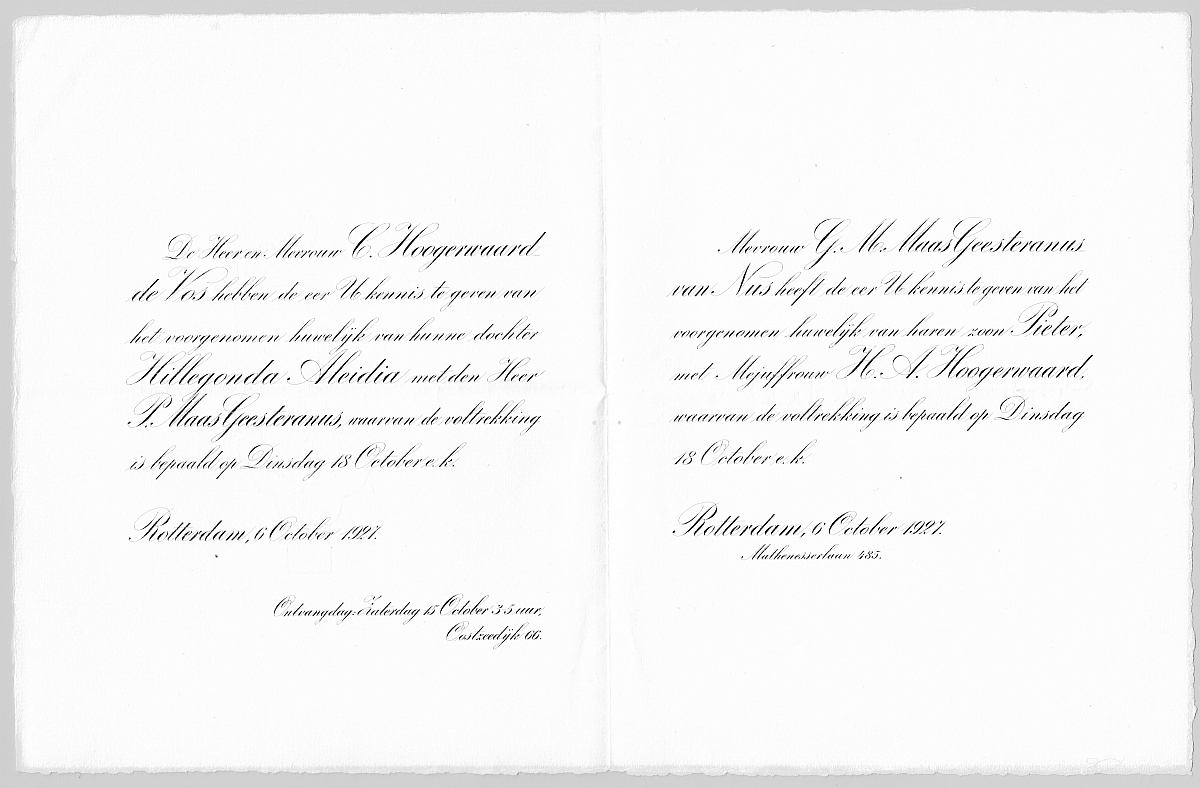 De Heer en Mevrouw C. Hoogerwaard-
de Vos hebben de eer U kennis te geven van
het voorgenomen huwelijk van hunne dochter
Hillegonda Aleidia met den Heer
P. Maas Geesteranus, waarvan de voltrekking
is bepaald op Dinsdag 18 October e.k.
Rotterdam, 6 October 1927.
Ontvangdag: Zaterdag 15 October 3-5 uur,
Oostzeedijk 66.
Mevrouw G. M. Maas Geesteranus-
van Nus heeft de eer U kennis te geven van het
voorgenomen huwelijk van haren zoon Pieter,
met Mejuffrouw H. A. Hoogerwaard,
waarvan de voltrekking is bepaald op Dinsdag
18 October e.k.
Rotterdam, 6 October 1927.
Mathenesserlaan 485.